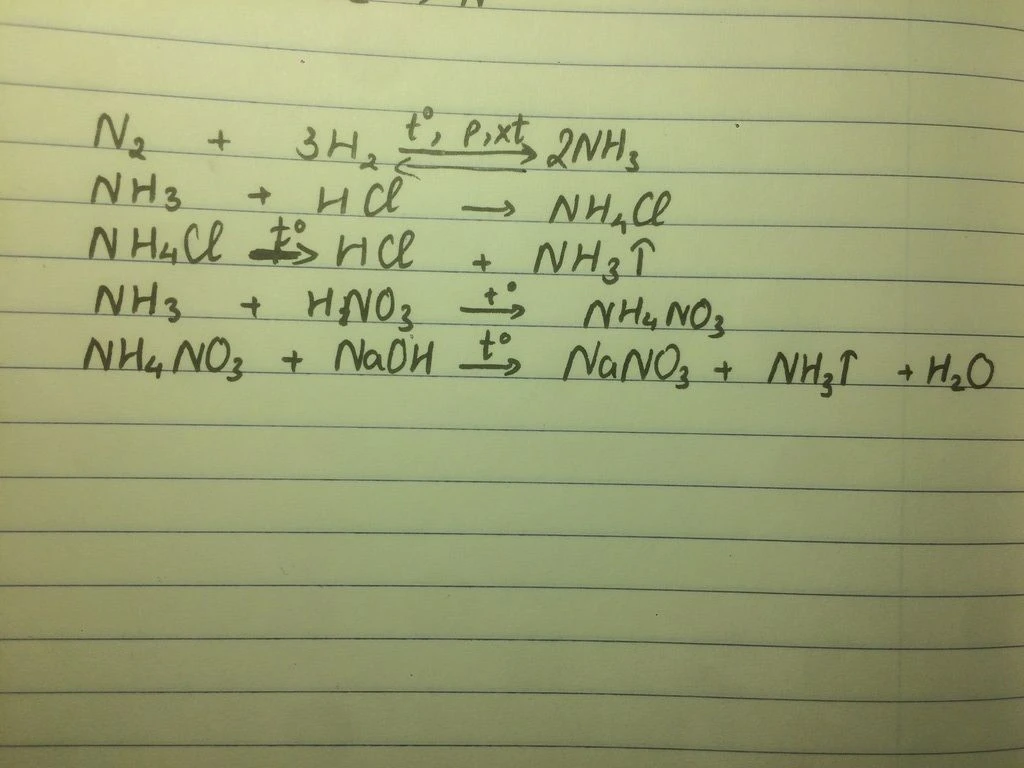 N₂ + 3H₂ ⇌ t°, p, xt 2NH₃
NH₃ + HCl → NH₄Cl
NH₄Cl t°→ HCl + NH₃↑
NH₃ + HNO₃ t°→ NH₄NO₃
NH₄NO₃ + NaOH t°→ NaNO₃ + NH₃↑ + H₂O